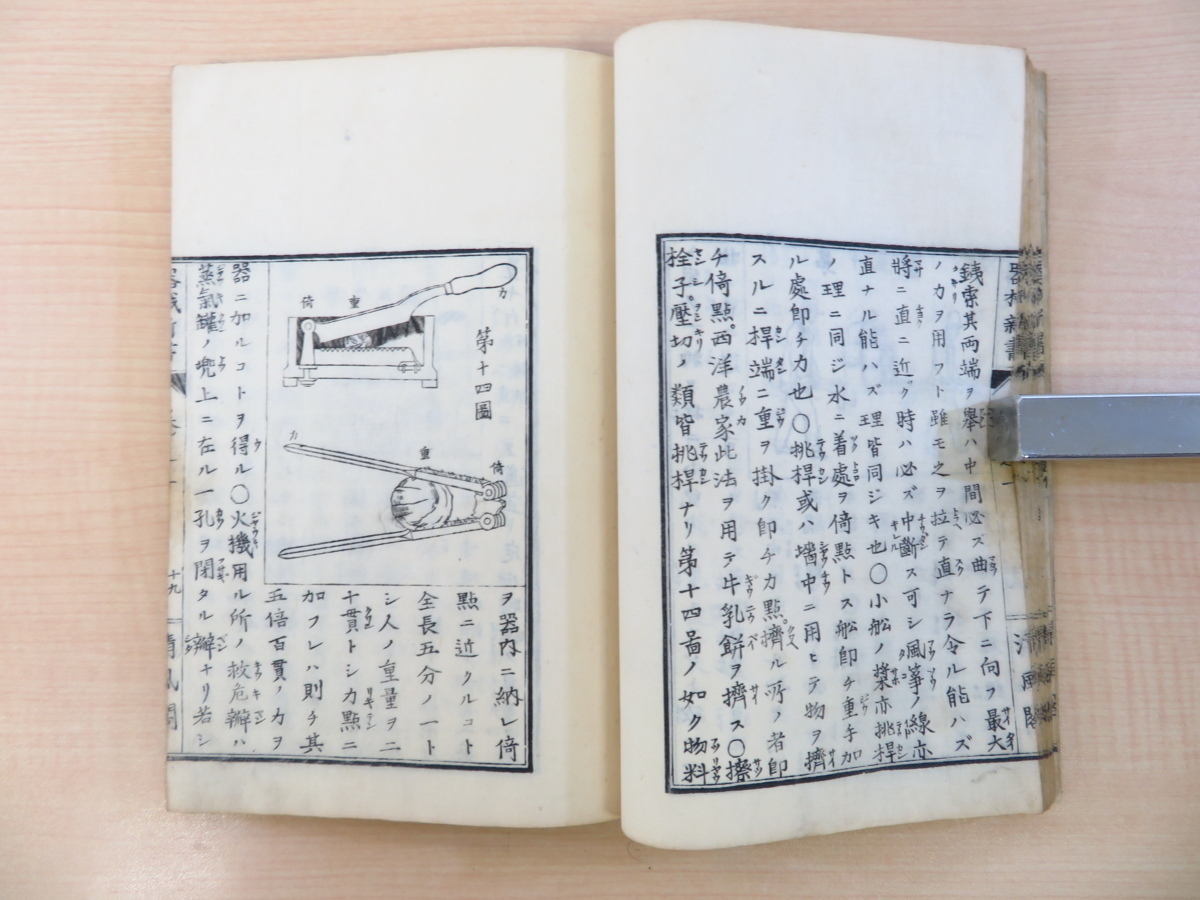 銕索其両端ヲ舉ハ中間必ズ曲テ下ニ向フ最大
ノカヲ用フト雖モ之ヲ拉テ直ナラ令ル能ハズ
將ニ直ニ近グ時ハ必ズ中斷ス可シ風箏ノ線亦
直ナル能ハズ理皆同ジキ也〇小船ノ槳亦挑桿
ノ理ニ同ジ水ニ着處ヲ倚點トス船即チ重手加
ル處即チ力也〇挑桿或ハ墻中ニ用ヒテ物ヲ擠
スルニ桿端ニ重ヲ掛ク即チカ點擠ル所ノ者即
チ倚點西洋農家此法ヲ用テ牛乳餅ヲ擠ス〇搾
栓子壓切ノ類皆挑桿ナリ第十四啚ノ如ク物料
第十四圖
倚 重 力
力 重 倚
ヲ器内ニ納レ倚
點ニ近クルコト
全長五分ノ一ト
シ人ノ重量ヲ二
十貫トシカ點ニ
加フレハ則チ其
五倍百貫ノカヲ
器ニ加ルコトヲ得ル〇火機用ル所ノ救危辦ハ
蒸氣罐ノ兠上ニ在ル一孔ヲ閉タル辦ナリ若シ
十九